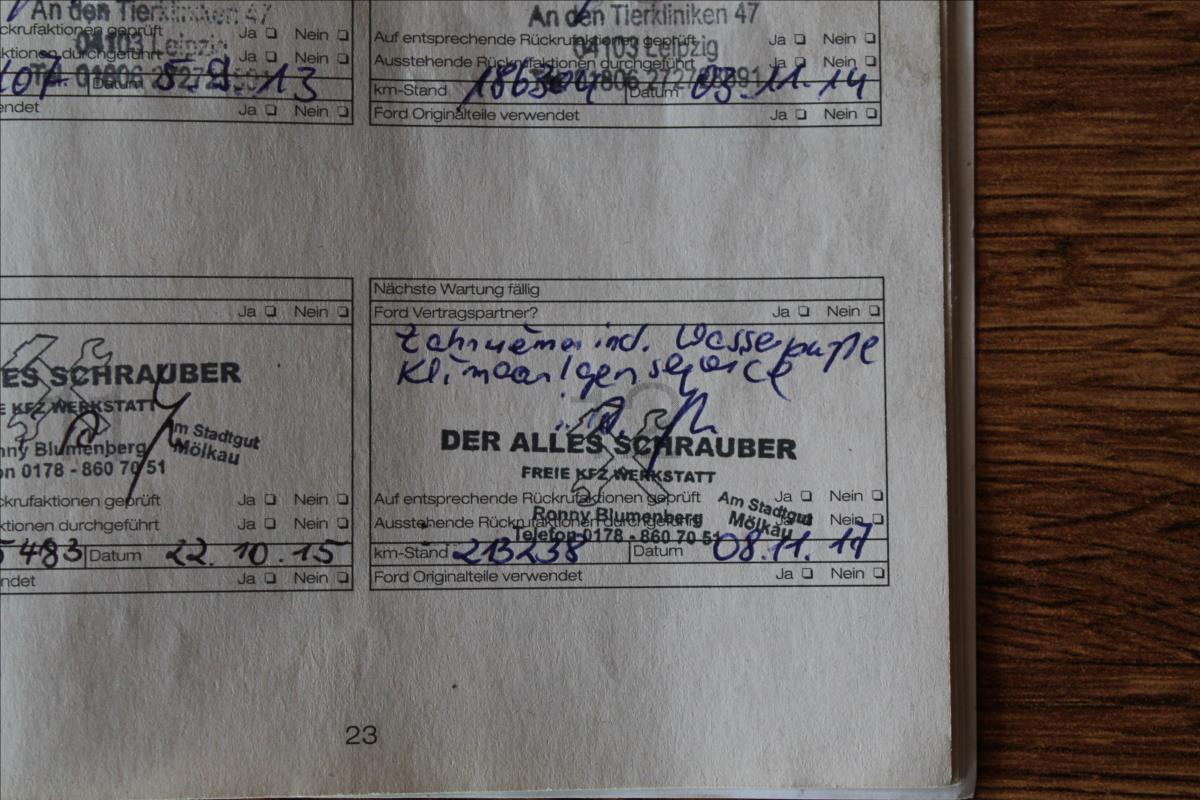 An den Tierkliniken 47
ckrufaktionen geprüft Ja Nein
04103 Leipzig
ktionen durchgeführt Ja Nein
Datum 5.9.13
endet Ja Nein
An den Tierkliniken 47
Auf entsprechende Rückrufaktionen geprüft Ja Nein
04103 Leipzig
Ausstehende Rückrufaktionen durchgeführt Ja Nein
km-Stand 186304 Datum 03.11.14
Ford Originalteile verwendet Ja Nein
Ja Nein
ES SCHRAUBER
E KFZ WERKSTATT
Am Stadtgut
Mölkau
nny Blumenberg
on 0178 - 860 70 51
ckrufaktionen geprüft Ja Nein
ktionen durchgeführt Ja Nein
5483 Datum 22.10.15
ndet Ja Nein
Nächste Wartung fällig
Ford Vertragspartner? Ja Nein
Zahnriemen incl. Wasserpumpe
Klimaanlgenservice
DER ALLES SCHRAUBER
FREIE KFZ WERKSTATT
Auf entsprechende Rückrufaktionen geprüft Ja Nein
Am Stadtgut
Mölkau
Ronny Blumenberg
Ausstehende Rückrufaktionen durchgeführt Ja Nein
Telefon 0178 - 860 70 51
km-Stand 213238 Datum 08.11.17
Ford Originalteile verwendet Ja Nein
23